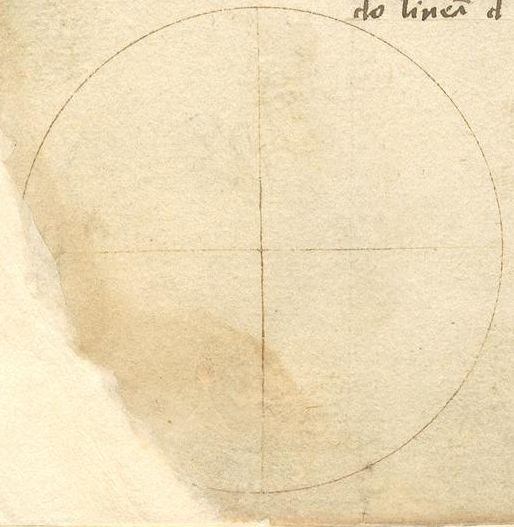 do lineā d